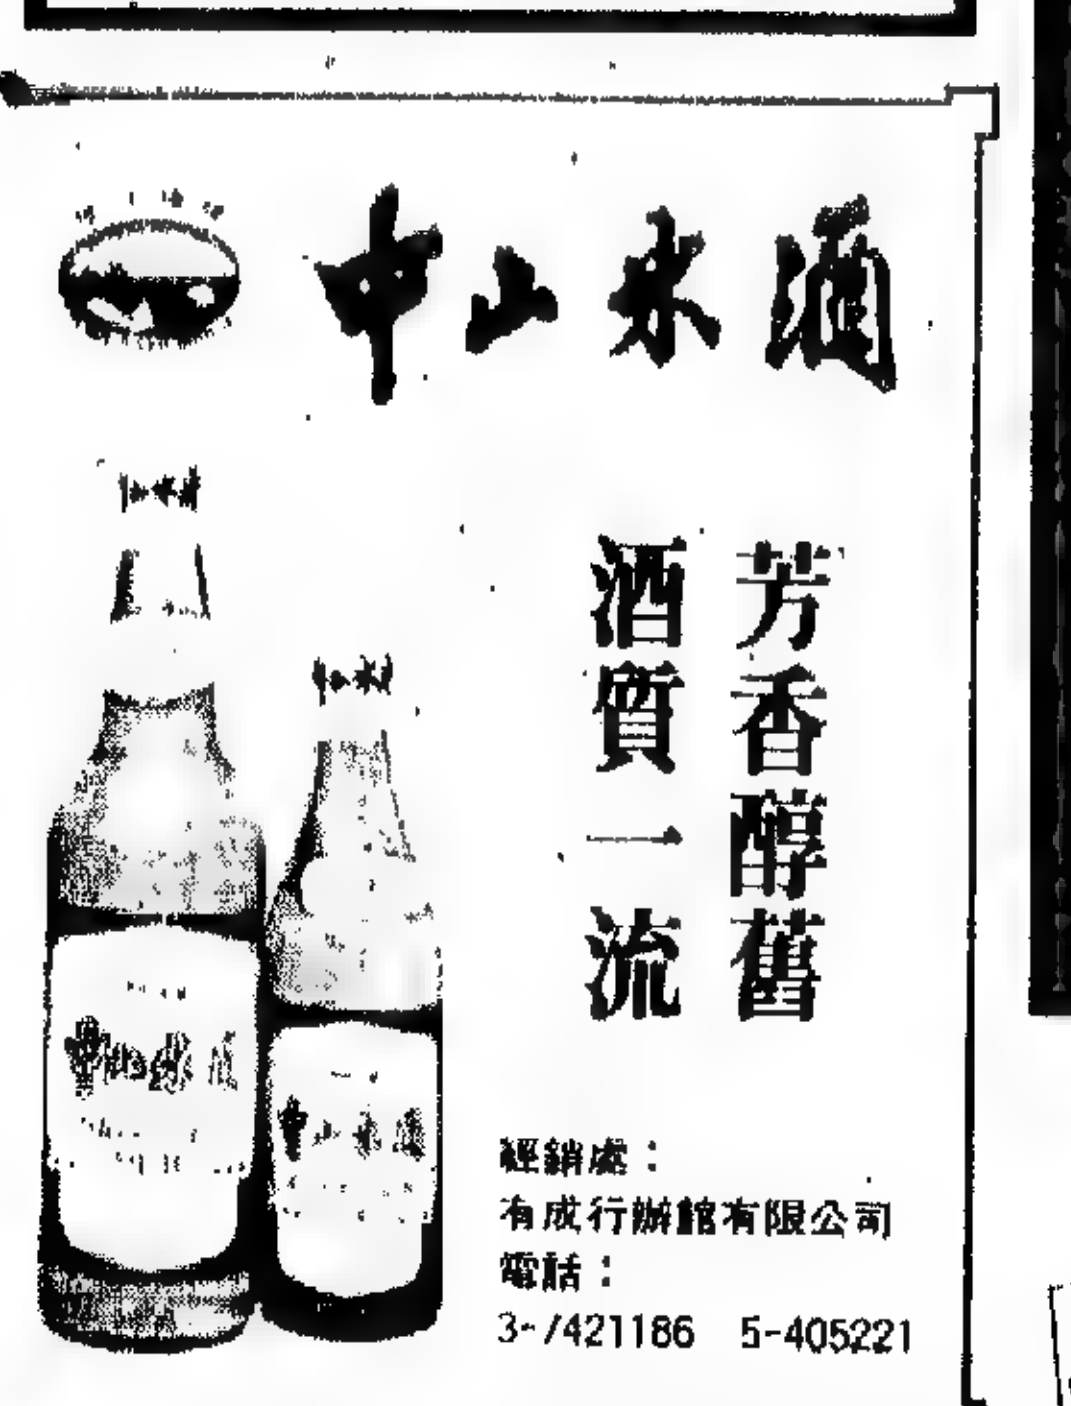 中山米酒
芳香醇舊
酒質一流
經銷處：
有成行辦館有限公司
電話：
3-7421186 5-405221